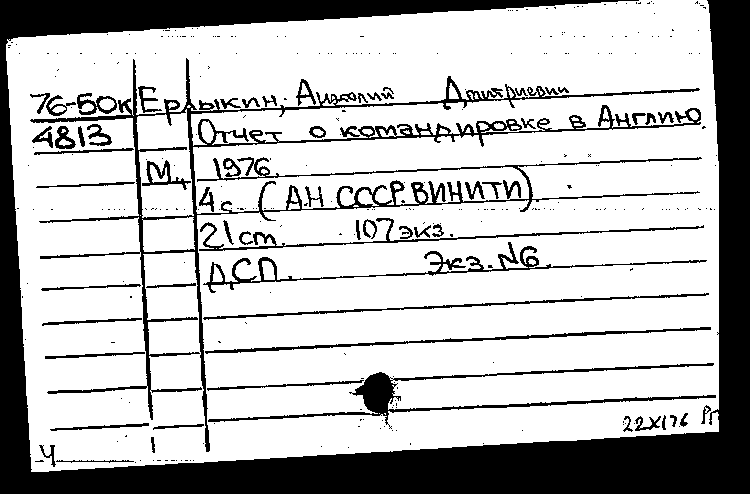 76-50к Ерлыкин, Анатолий Дмитриевич
4813 Отчет о командировке в Англию.
М., 1976.
4 с. (АН СССР. ВИНИТИ).
21 cm. 107 экз.
ДСП. Экз. №6.
22 XI 76
Ч